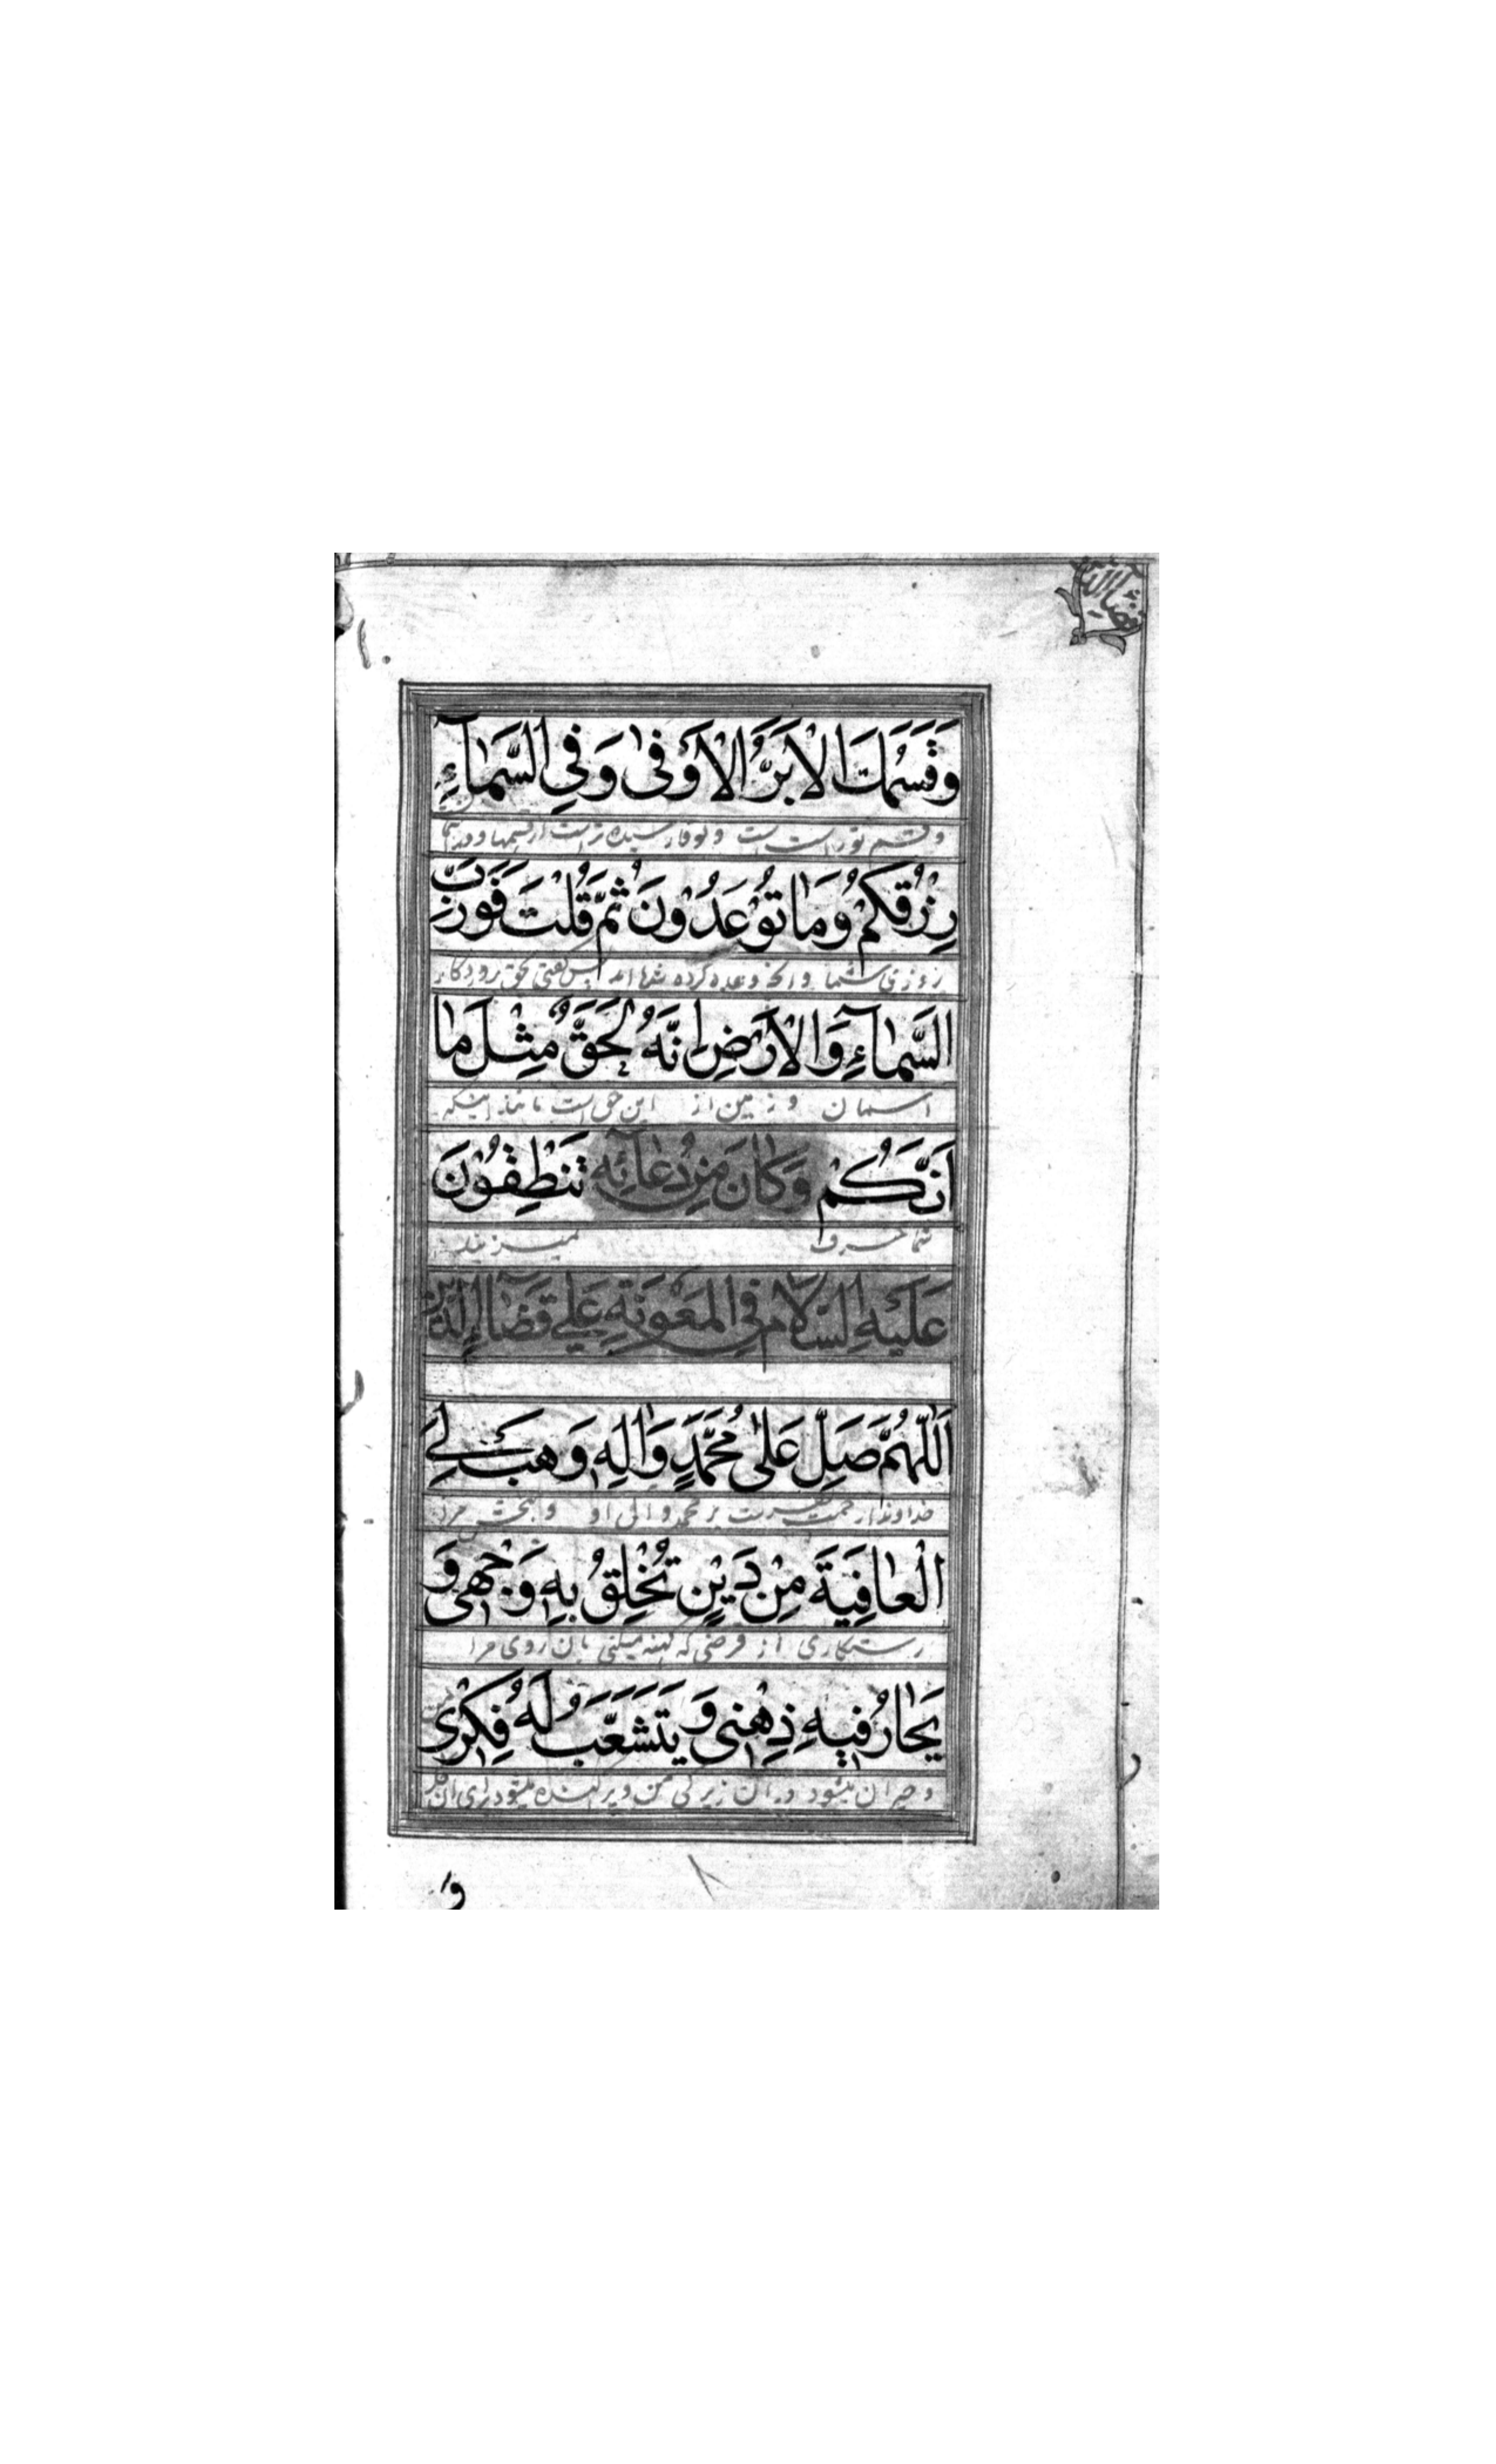 قضاء الدین
وَقَسَمُكَ الْاَبَرُّ الْاَوْفٰى وَفِي السَّمٰآءِ
و قسم تو راست است و بوفا رسیده تر است از قسمها و در سما
رِزْقُكُمْ وَمٰا تُوْعَدُوْنَ ثُمَّ قُلْتَ فَوَرَبِّ
روزی شما و انچه وعده کرده شده اید پس گفتی بحق پروردگار
السَّمٰآءِ وَالْاَرْضِ اِنَّهُ لَحَقٌّ مِثْلَ مٰا
اسمان و زمین از این حق است مانند اینکه
اَنَّكُمْ وَكٰانَ مِنْ دُعٰآئِهِ تَنْطِقُوْنَ
شما حرف میزنید
عَلَيْهِ السَّلٰامُ فِي الْمَعُوْنَةِ عَلٰى قَضٰآءِ الدَّيْنِ
اَللّٰهُمَّ صَلِّ عَلٰى مُحَمَّدٍ وَاٰلِهِ وَهَبْ لِيَ
خداوندا رحمت بفرست بر محمد و ال او و ببخش مرا
الْعٰافِيَةَ مِنْ دَيْنٍ تُخْلِقُ بِهِ وَجْهِى وَ
رستگاری از قرضی که کهنه میکنی بان روی مرا
يَحٰارُ فِيْهِ ذِهْنِى وَيَتَشَعَّبُ لَهُ فِكْرِى
و حیران میشود در ان زیرکی من و پراکنده میشود برای ان فکر
وَ